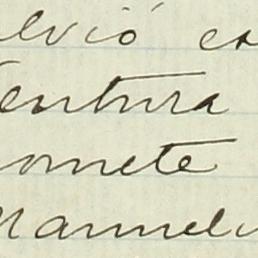 elvió es
Ventura
omete
Manuel